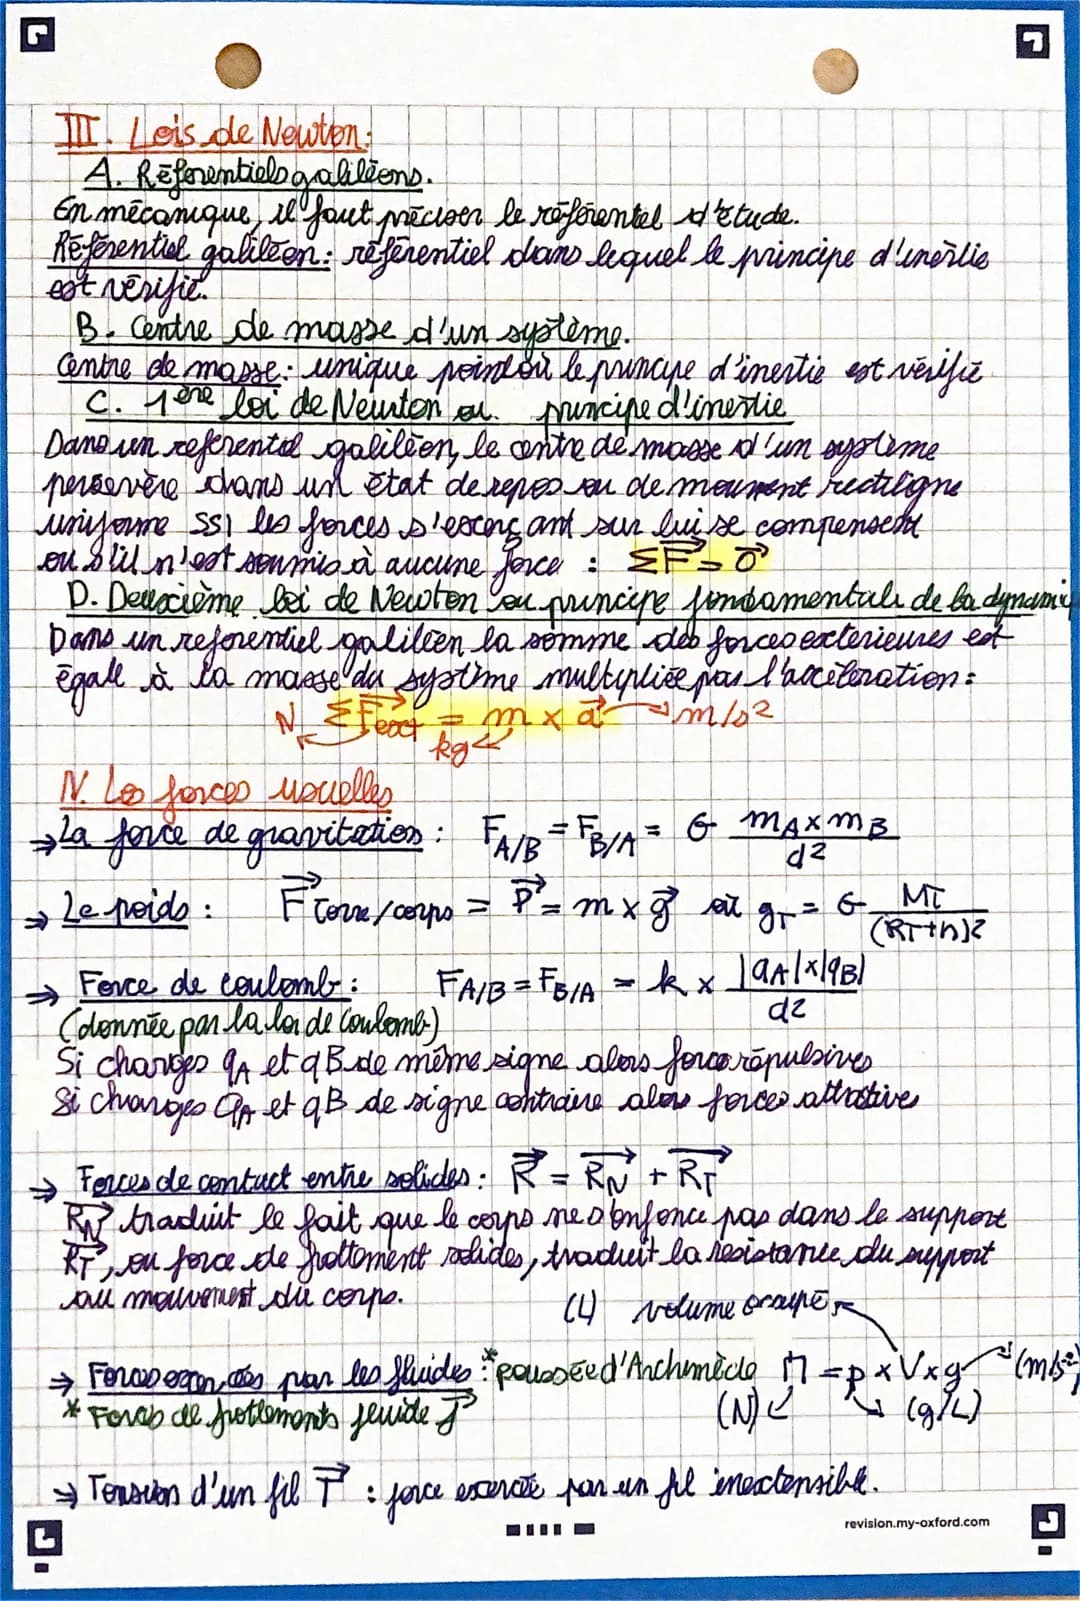 III. Lois de Newton:
A. Référentiels galiléens.
En mécanique, il faut préciser le référentiel d'étude.
Référentiel galiléen: référentiel dans lequel le principe d'inertie
est vérifié.
B. Centre de masse d'un système.
Centre de masse: unique point où le principe d'inertie est vérifié
C. 1ère loi de Newton ou principe d'inertie
Dans un referentiel galiléen, le centre de masse d'un système
persevère dans un état de repos ou de mouvment rectiligne
uniforme SSI les forces s'exerçant sur lui se compensent
ou s'il n'est soumis à aucune force : ΣF⃗ = 0⃗
D. Deuxième loi de Newton ou principe fondamentale de la dynami
Dans un referentiel galiléen la somme des forces exterieures est
égale à la masse du système multipliée par l'accélération:
N ΣF⃗ext = m x a⃗ → m/s²
kg
IV. Les forces usuelles
→ La force de gravitation : F A/B = F B/A = G mA x mB / d²
→ Le poids : F⃗ Terre/corps = P⃗ = m x g⃗ où gT = G MT / (RT+h)²
→ Force de coulomb : FA/B = FB/A = k x |qA|x|qB| / d²
(donnée par la loi de Coulomb)
Si charges qA et qB de même signe alors force répulsives
Si charges qA et qB de signe contraire alors forces attractives
→ Forces de contact entre solides: R⃗ = R⃗N + R⃗T
R⃗N traduit le fait que le corps ne s'enfonce pas dans le support
R⃗T, ou force de frottement solides, traduit la résistance du support
au mouvement du corps.
(L) volume occupé
→ Forces exercées par les fluides : * poussée d'Archimède Π = ρ x V x g → (m/s²)
* Forces de frottements fluide f⃗ (N) (g/L)
→ Tension d'un fil T⃗ : force exercée par un fil inextensible.
revision.my-oxford.com